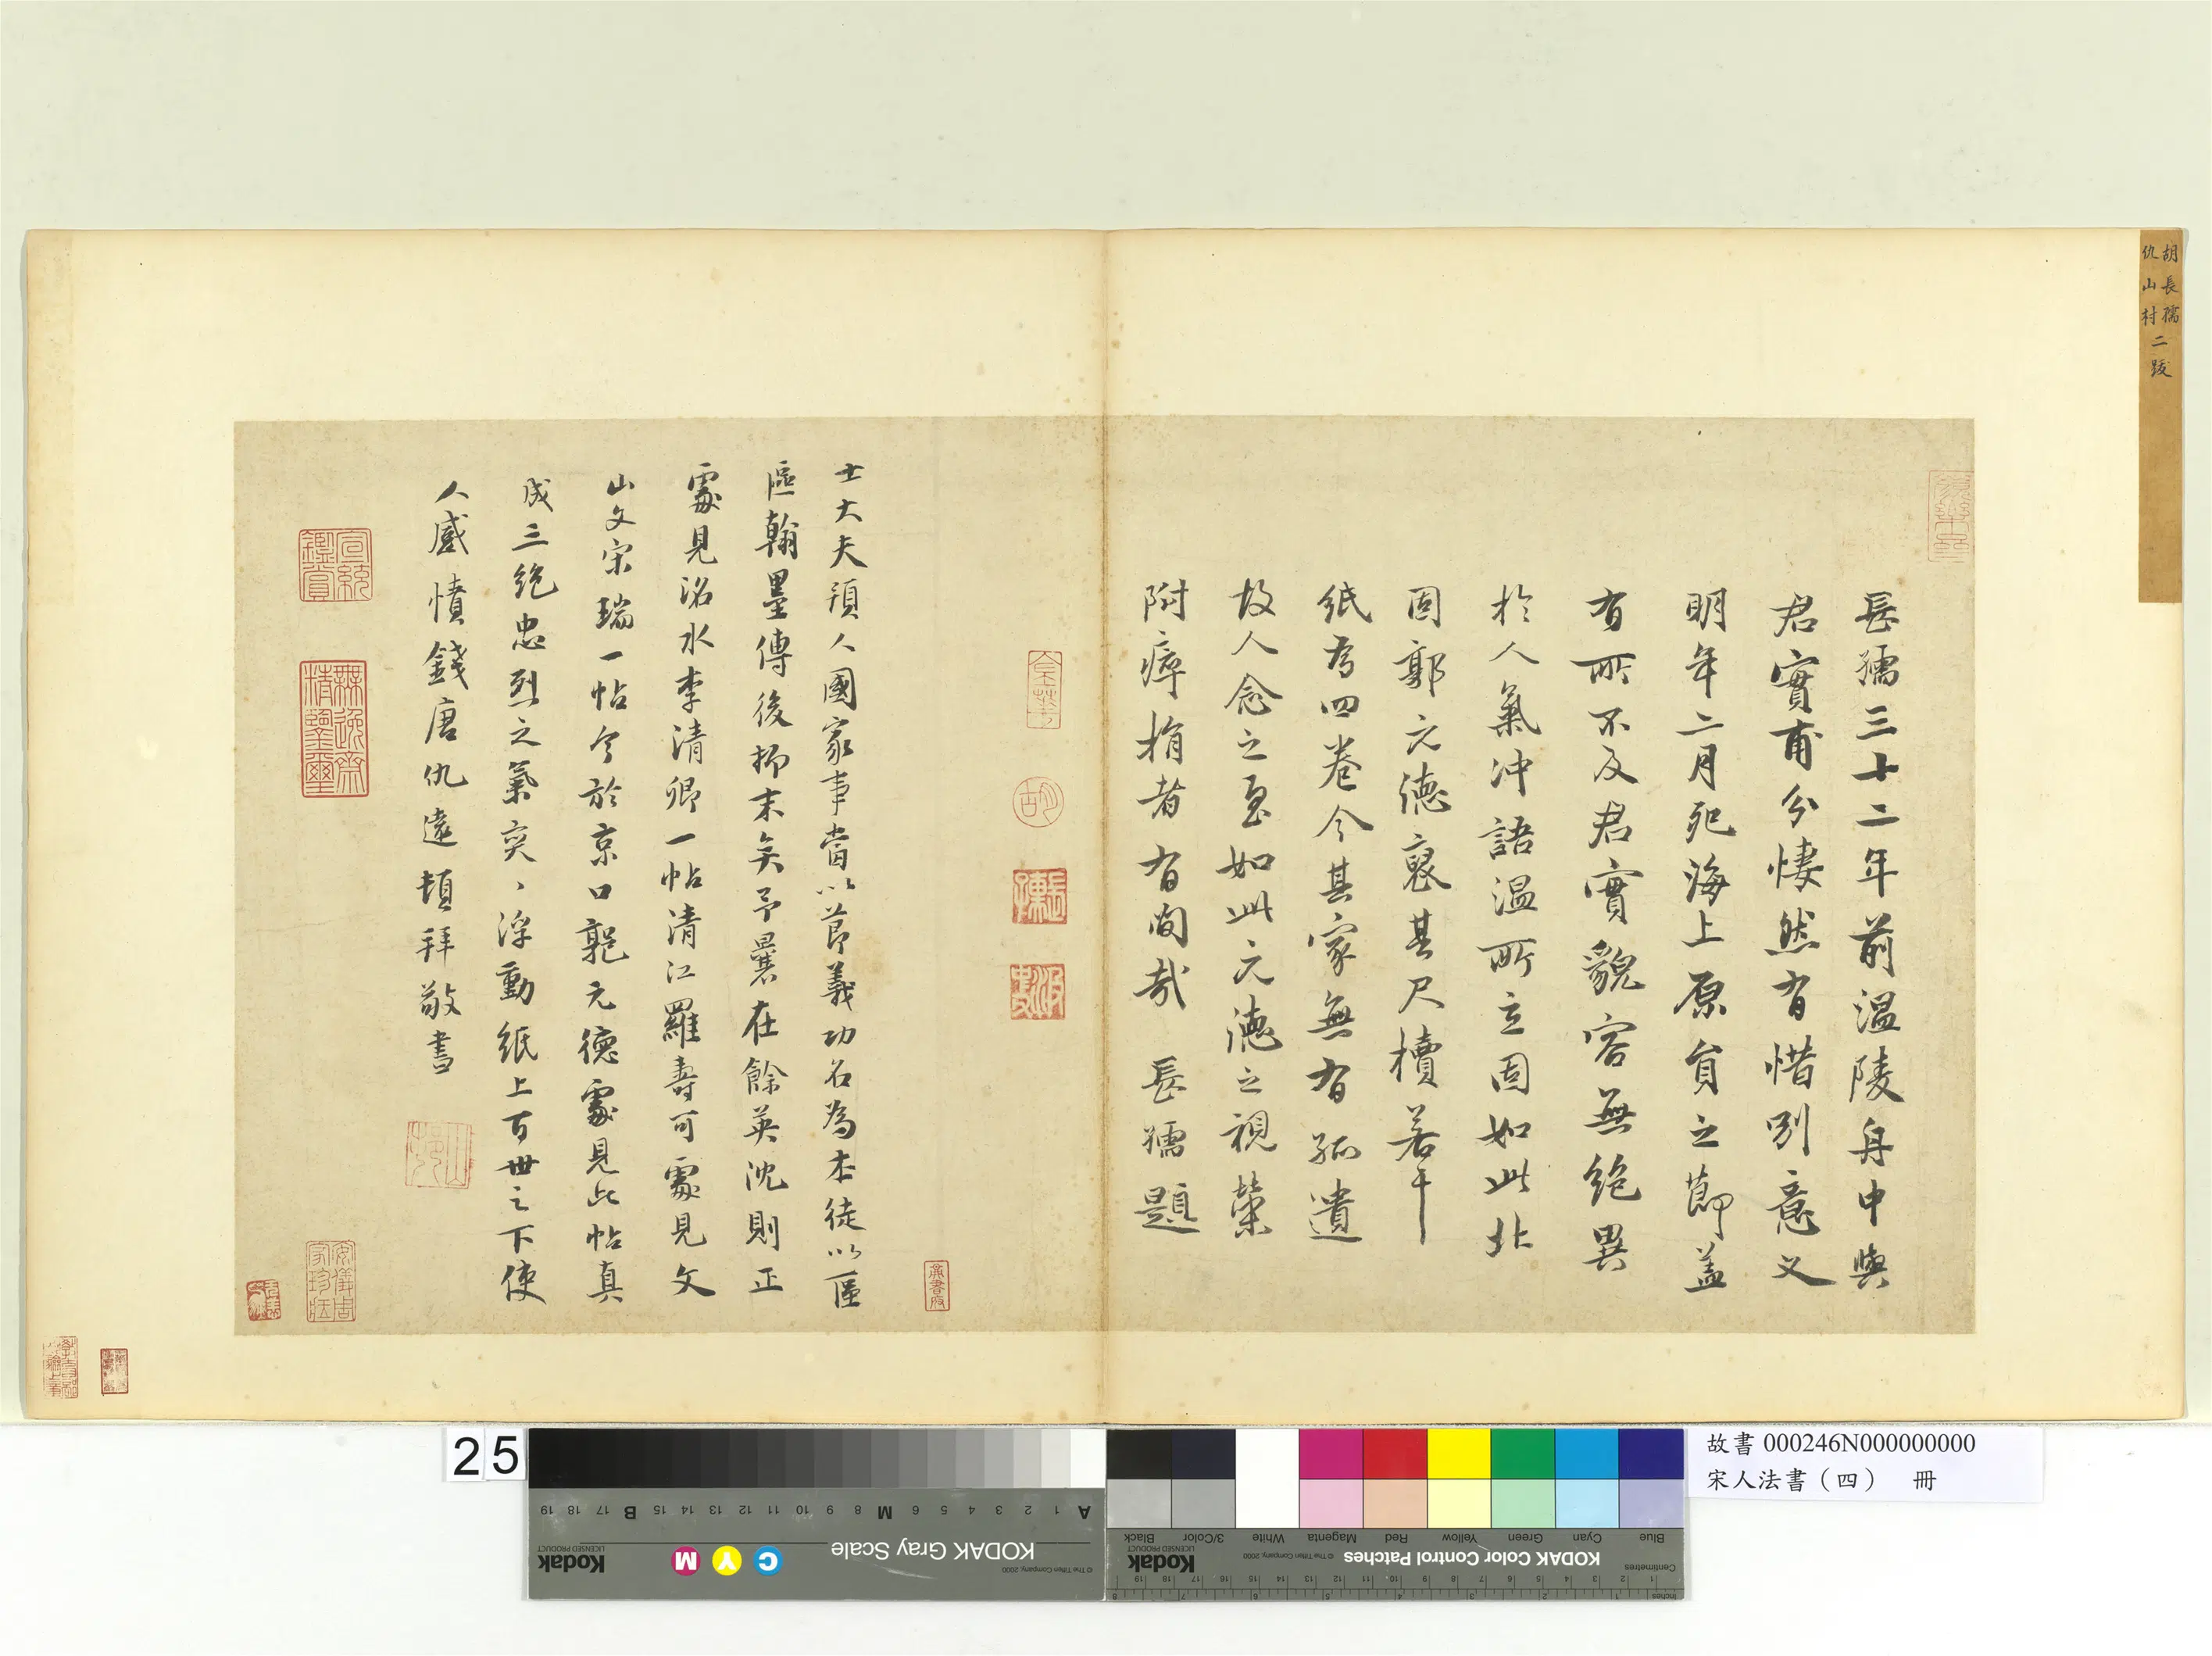 胡長孺
仇山村
二跋
長孺三十二年前溫陵舟中與
君實甫分悽然有惜別意又
明年二月死海上原負之節蓋
有所不及君實貌容無絕異
於人氣沖語溫所立固如此北
固郭元德裒其尺牘若干
紙為四卷今其家無有孤遺
故人念之至如此元德之視榮
附瘁捐者有間哉 長孺題
士大夫預人國家事當以節義功名為本徒以區
區翰墨傳後抑末矣予曩在餘英沈則正
處見洺水李清卿一帖清江羅壽可處見文
山文宋瑞一帖今於京口郭元德處見此帖真
成三絕忠烈之氣突、浮動紙上百世之下使
人感憤錢唐仇遠頓拜敬書
宣統
鑑賞
無逸齋
精鑒璽
安儀周
家珍藏
山
邨
25
KODAK Gray Scale
Kodak
LICENSED PRODUCT
© The Tiffen Company, 2000
C Y M
A 1 2 3 4 5 6 M 8 9 10 11 12 13 14 15 B 17 18 19
KODAK Color Control Patches
Kodak
LICENSED PRODUCT
© The Tiffen Company, 2000
Blue Cyan Green Yellow Red Magenta White 3/Color Black
Centimetres
Inches
故書 000246N000000000
宋人法書（四） 冊